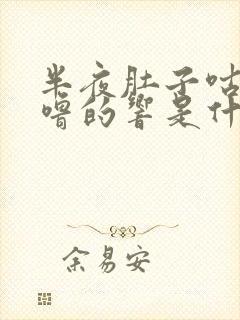 半夜肚子咕
噜的响是什
余易安